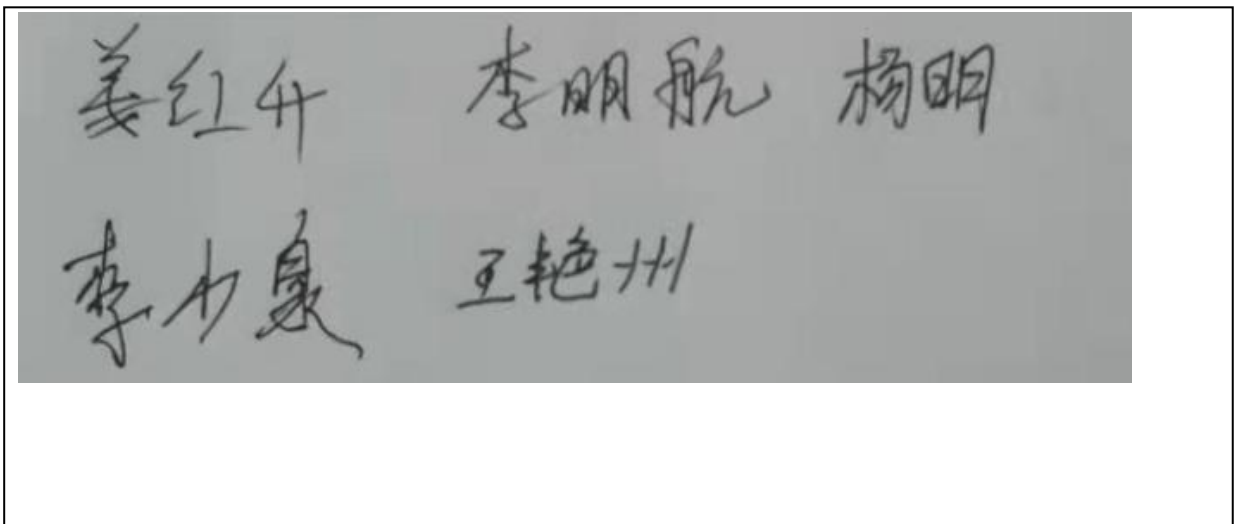 姜红升 李明航 杨明
李小泉 王艳州